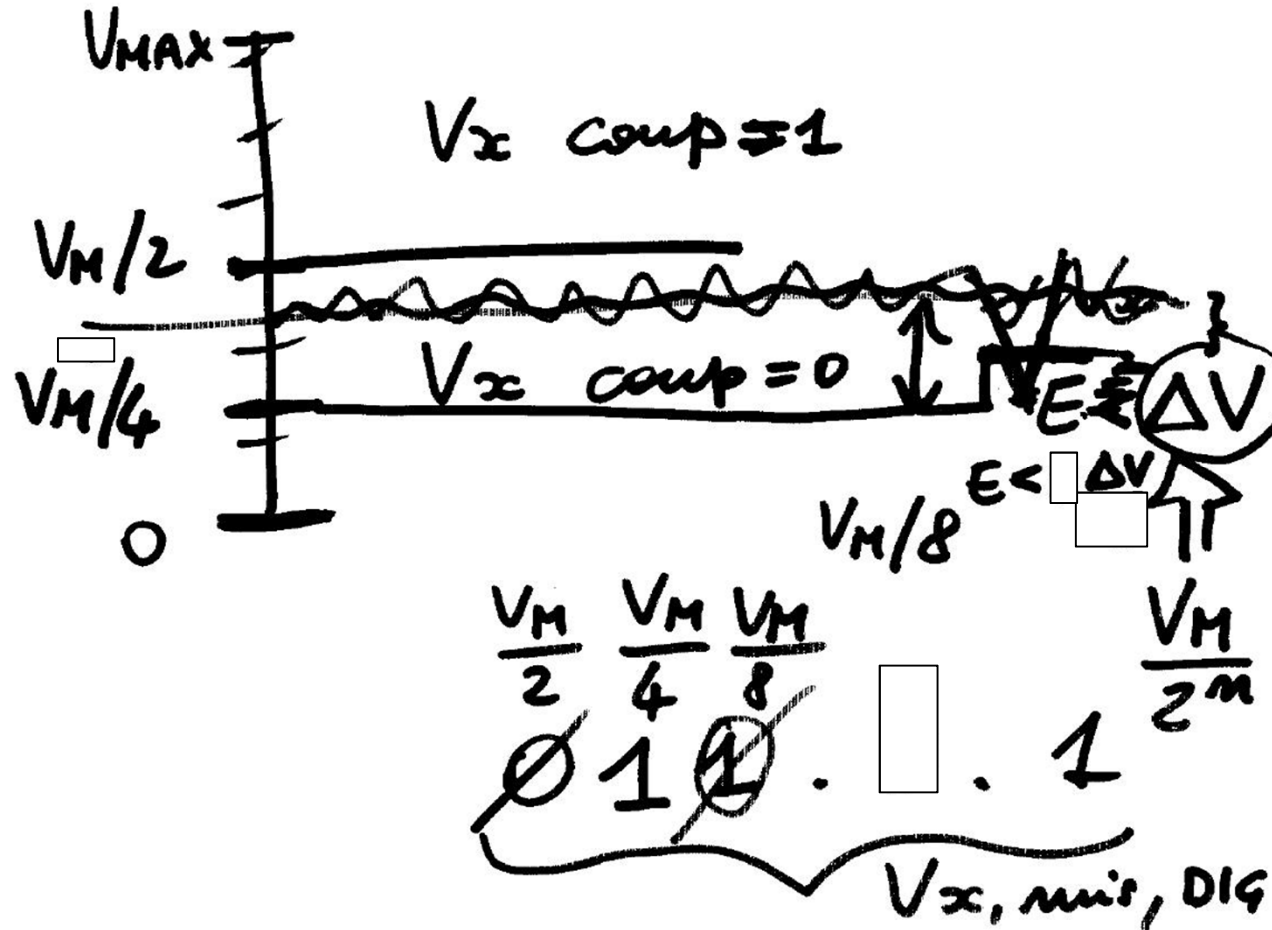 VMAX
Vx comp = 1
VM/2
VM/4
Vx comp = 0
E
ΔV
E < ΔV
VM/8
0
VM/2 VM/4 VM/8 VM/2^n
0 1 1 . . 1
Vx, mis, DIG